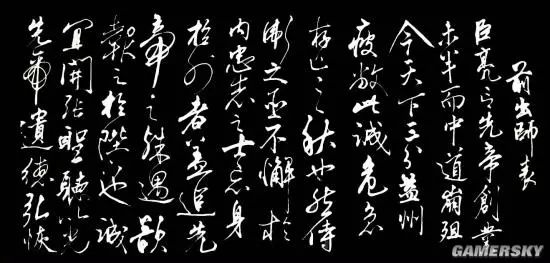 前出師表
臣亮言先帝創業
未半而中道崩殂
今天下三分益州
疲敝此誠危急
存亡之秋也然侍
衛之臣不懈於
内忠志之士忘身
於外者蓋追先
帝之殊遇欲
報之於陛下也誠
宜開張聖聽以光
先帝遺德弘恢
GAMERSKY